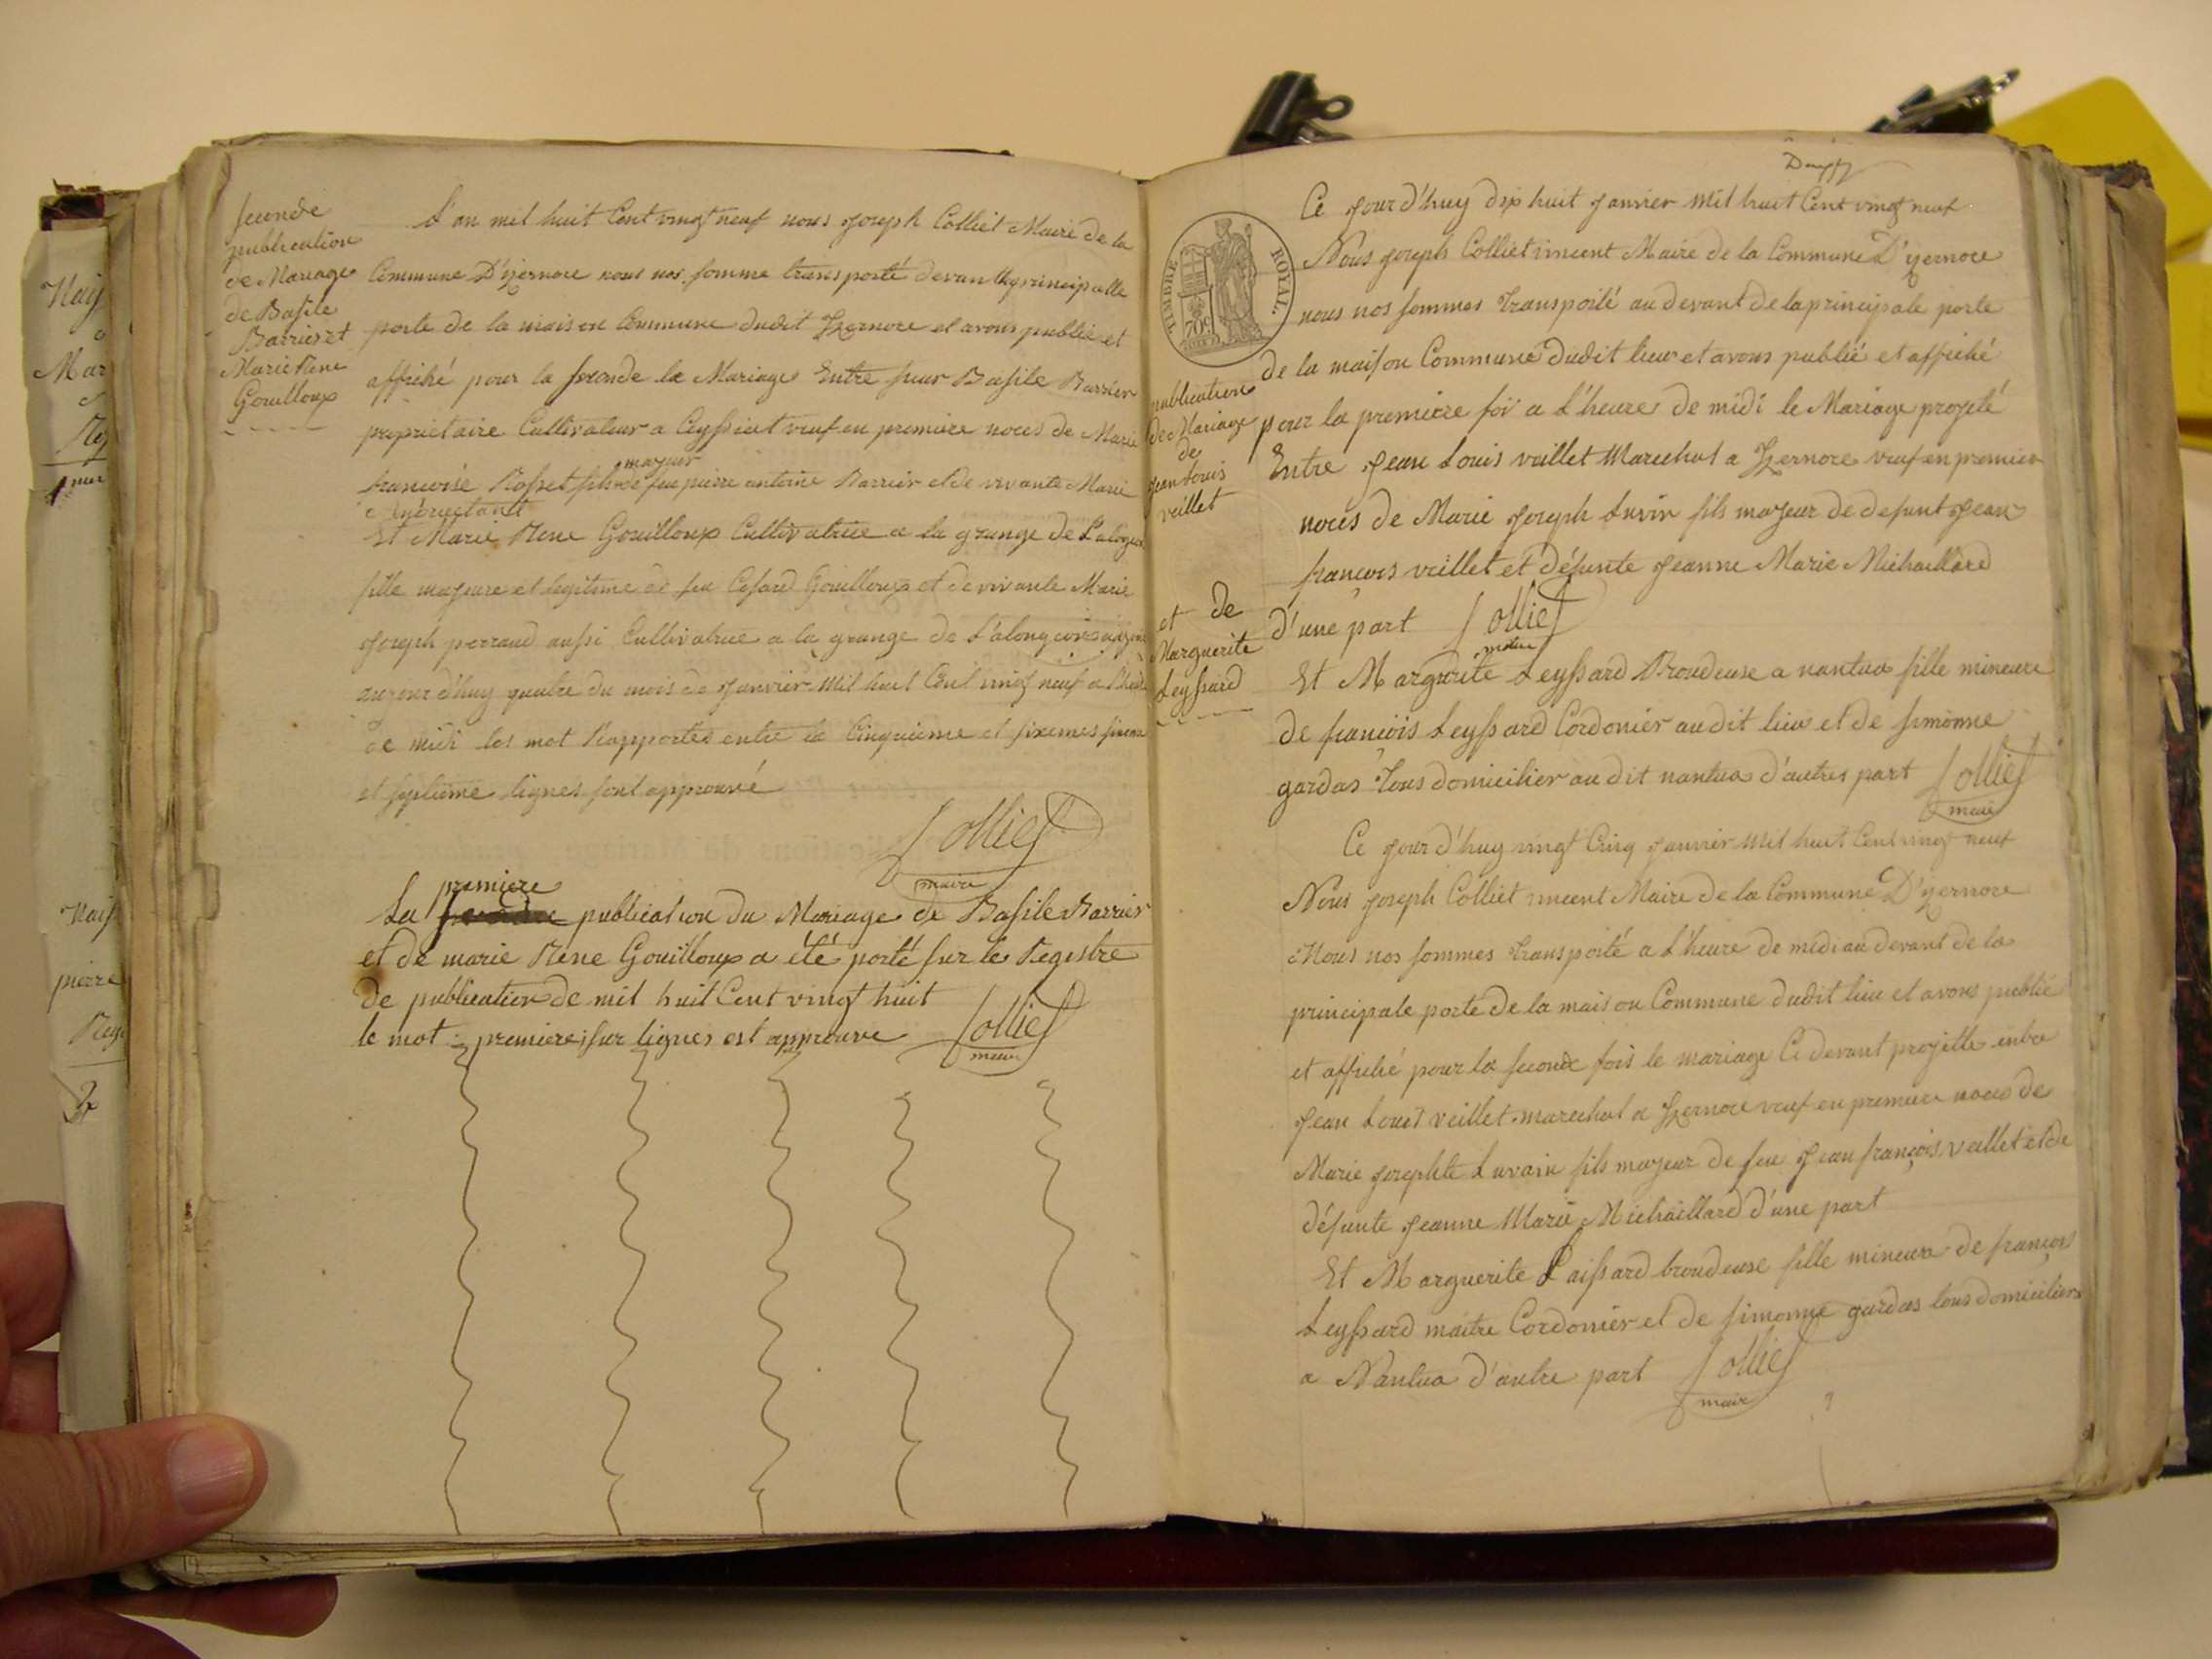 seconde
publication
de Mariage
de Basile
Barrier et
Marie Rene
Gouilloux
L'an mil huit Cent vingt neuf nous joseph Colliet Maire de la
Commune D'yzernore nous nos somme transporté devan la principalle
porte de la maison Commune dudit Izernore et avons publié et
affiché pour la seconde le Mariage Entre sieur Basile Barrier
proprietaire Cultivateur a Ceyssiat veuf en premiere noces de Marie
françoise Rosset fils majeur de feu pierre antoine Barrier et de vivante Marie
Et Marie Rene Gouilloux Cultivatrice a la grange de
fille majeure et legitime de feu Cesard Gouilloux et de vivante Marie
joseph perraud aussi Cultivatrice a la grange de
aujourd'huy quatre du mois de janvier mil huit Cent vingt neuf a
de midi les mot Rapportés entre la Cinquieme et sixiemes
et septieme lignes sont approuvé
Colliet
maire
La premiere publication du Mariage de Basile Barrier
et de marie Rene Gouilloux a été porté sur le Registre
de publication de mil huit Cent vingt huit
le mot premiere sur lignes est approuve Colliet
maire
TIMBRE ROYAL
70c
Ce jourd'huy dix huit janvier mil huit Cent vingt neuf
Nous joseph Colliet vincent Maire de la Commune D'yzernore
nous nos sommes transporté au devant de la principale porte
de la maison Commune dudit lieu et avons publié et affiché
pour la premiere foi a l'heure de midi le Mariage projeté
Entre jean Louis veillet Marechal a Izernore veuf en premier
noces de Marie joseph Luvin fils majeur de defunt jean
françois veillet et défunte jeanne Marie Michaillard
d'une part Colliet
maire
Et Margurite Leyssard Broudeuse a nantua fille mineure
de françois Leyssard Cordonier audit lieu et de simonne
gardas tous domicilier audit nantua d'autres part Colliet
maire
publication
de Mariage
de
jean Louis
veillet
et de
Marguerite
Leyssard
Ce jourd'huy vingt Cinq janvier mil huit Cent vingt neuf
Nous joseph Colliet vincent Maire de la Commune D'yzernore
Nous nos sommes transporté a l'heure de midi au devant de la
principale porte de la maison Commune dudit lieu et avons publié
et affiché pour la seconde fois le mariage Ci devant projetté entre
jean Louis veillet marechal a Izernore veuf en premiere noces de
Marie josephte Luvain fils majeur de feu jean françois veillet et de
défunte jeanne Marie Michaillard d'une part
Et Marguerite Laissard broudeuse fille mineure de françois
Leyssard maitre Cordonier et de simonne gardas tous domiciliers
a Nantua d'autre part Colliet
maire